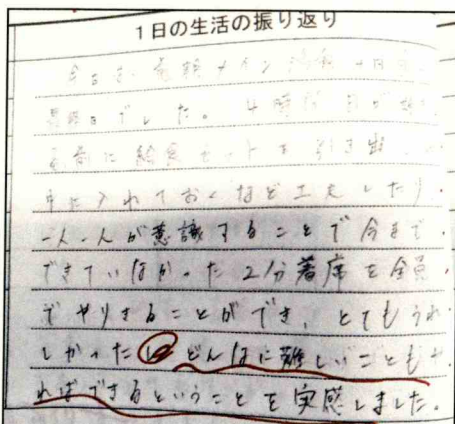 1日の生活の振り返り
今日は、
でした。4時間目が
前に給食セットを引き出
中に入れておくなど工夫したり、
一人一人が意識することで今まで
できていなかった2分着席を全員
でやりきることができ、とてもうれ
しかったし どんなに難しいこともや
ればできるということを実感しました。